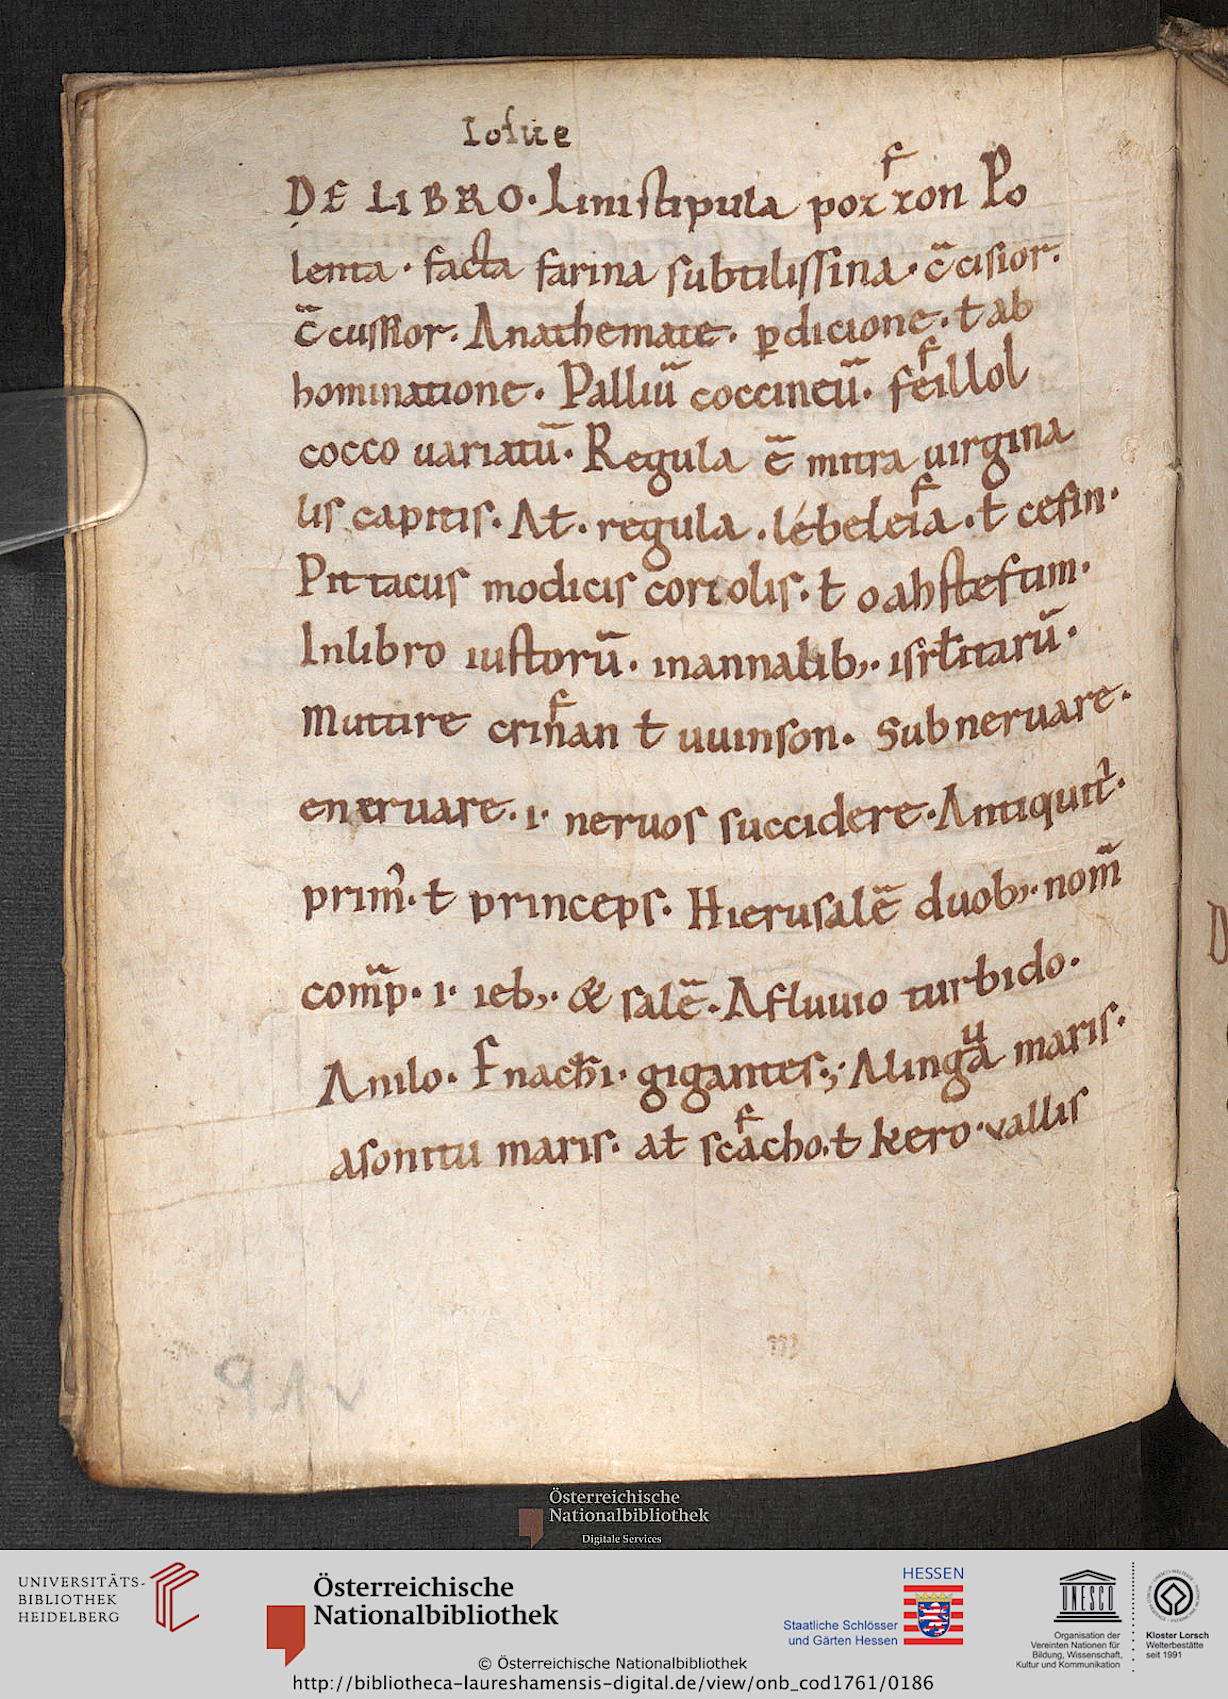 Iosue
DE LIBRO. Lini stipula poz xon Po
lenta . facta farina subtilissina . c̄cisior.
c̄cussior. Anathemate . pdicione . ł ab
hominatione . Palliū coccineū . feillol
cocco uariatū . Regula ē mitra uirgina
lis capitis . At . regula . lébeleia . ł cefin .
Pittacus modicis coriolis . ł oahstefum .
Inlibro iustorū . inannalib; . isrłitarū .
Muttire criman ł uuinson . Subneruare .
eneruare . i . neruos succidere . Antiquit᾿ .
prim᾿ . ł princeps . Hierusalē duob; . nom̄
com̄p . i . ieb; . & salē . A fluuio turbido .
A nilo . Enachi . gigantes . ; A linga maris .
asonitu maris . at scacho . ł kero . vallis
m
Österreichische
Nationalbibliothek
Digitale Services
UNIVERSITÄTS-
BIBLIOTHEK
HEIDELBERG
Österreichische
Nationalbibliothek
HESSEN
Staatliche Schlösser
und Gärten Hessen
UNESCO
Organisation der
Vereinten Nationen für
Bildung, Wissenschaft,
Kultur und Kommunikation
Kloster Lorsch
Welterbestätte
seit 1991
© Österreichische Nationalbibliothek
http://bibliotheca-laureshamensis-digital.de/view/onb_cod1761/0186